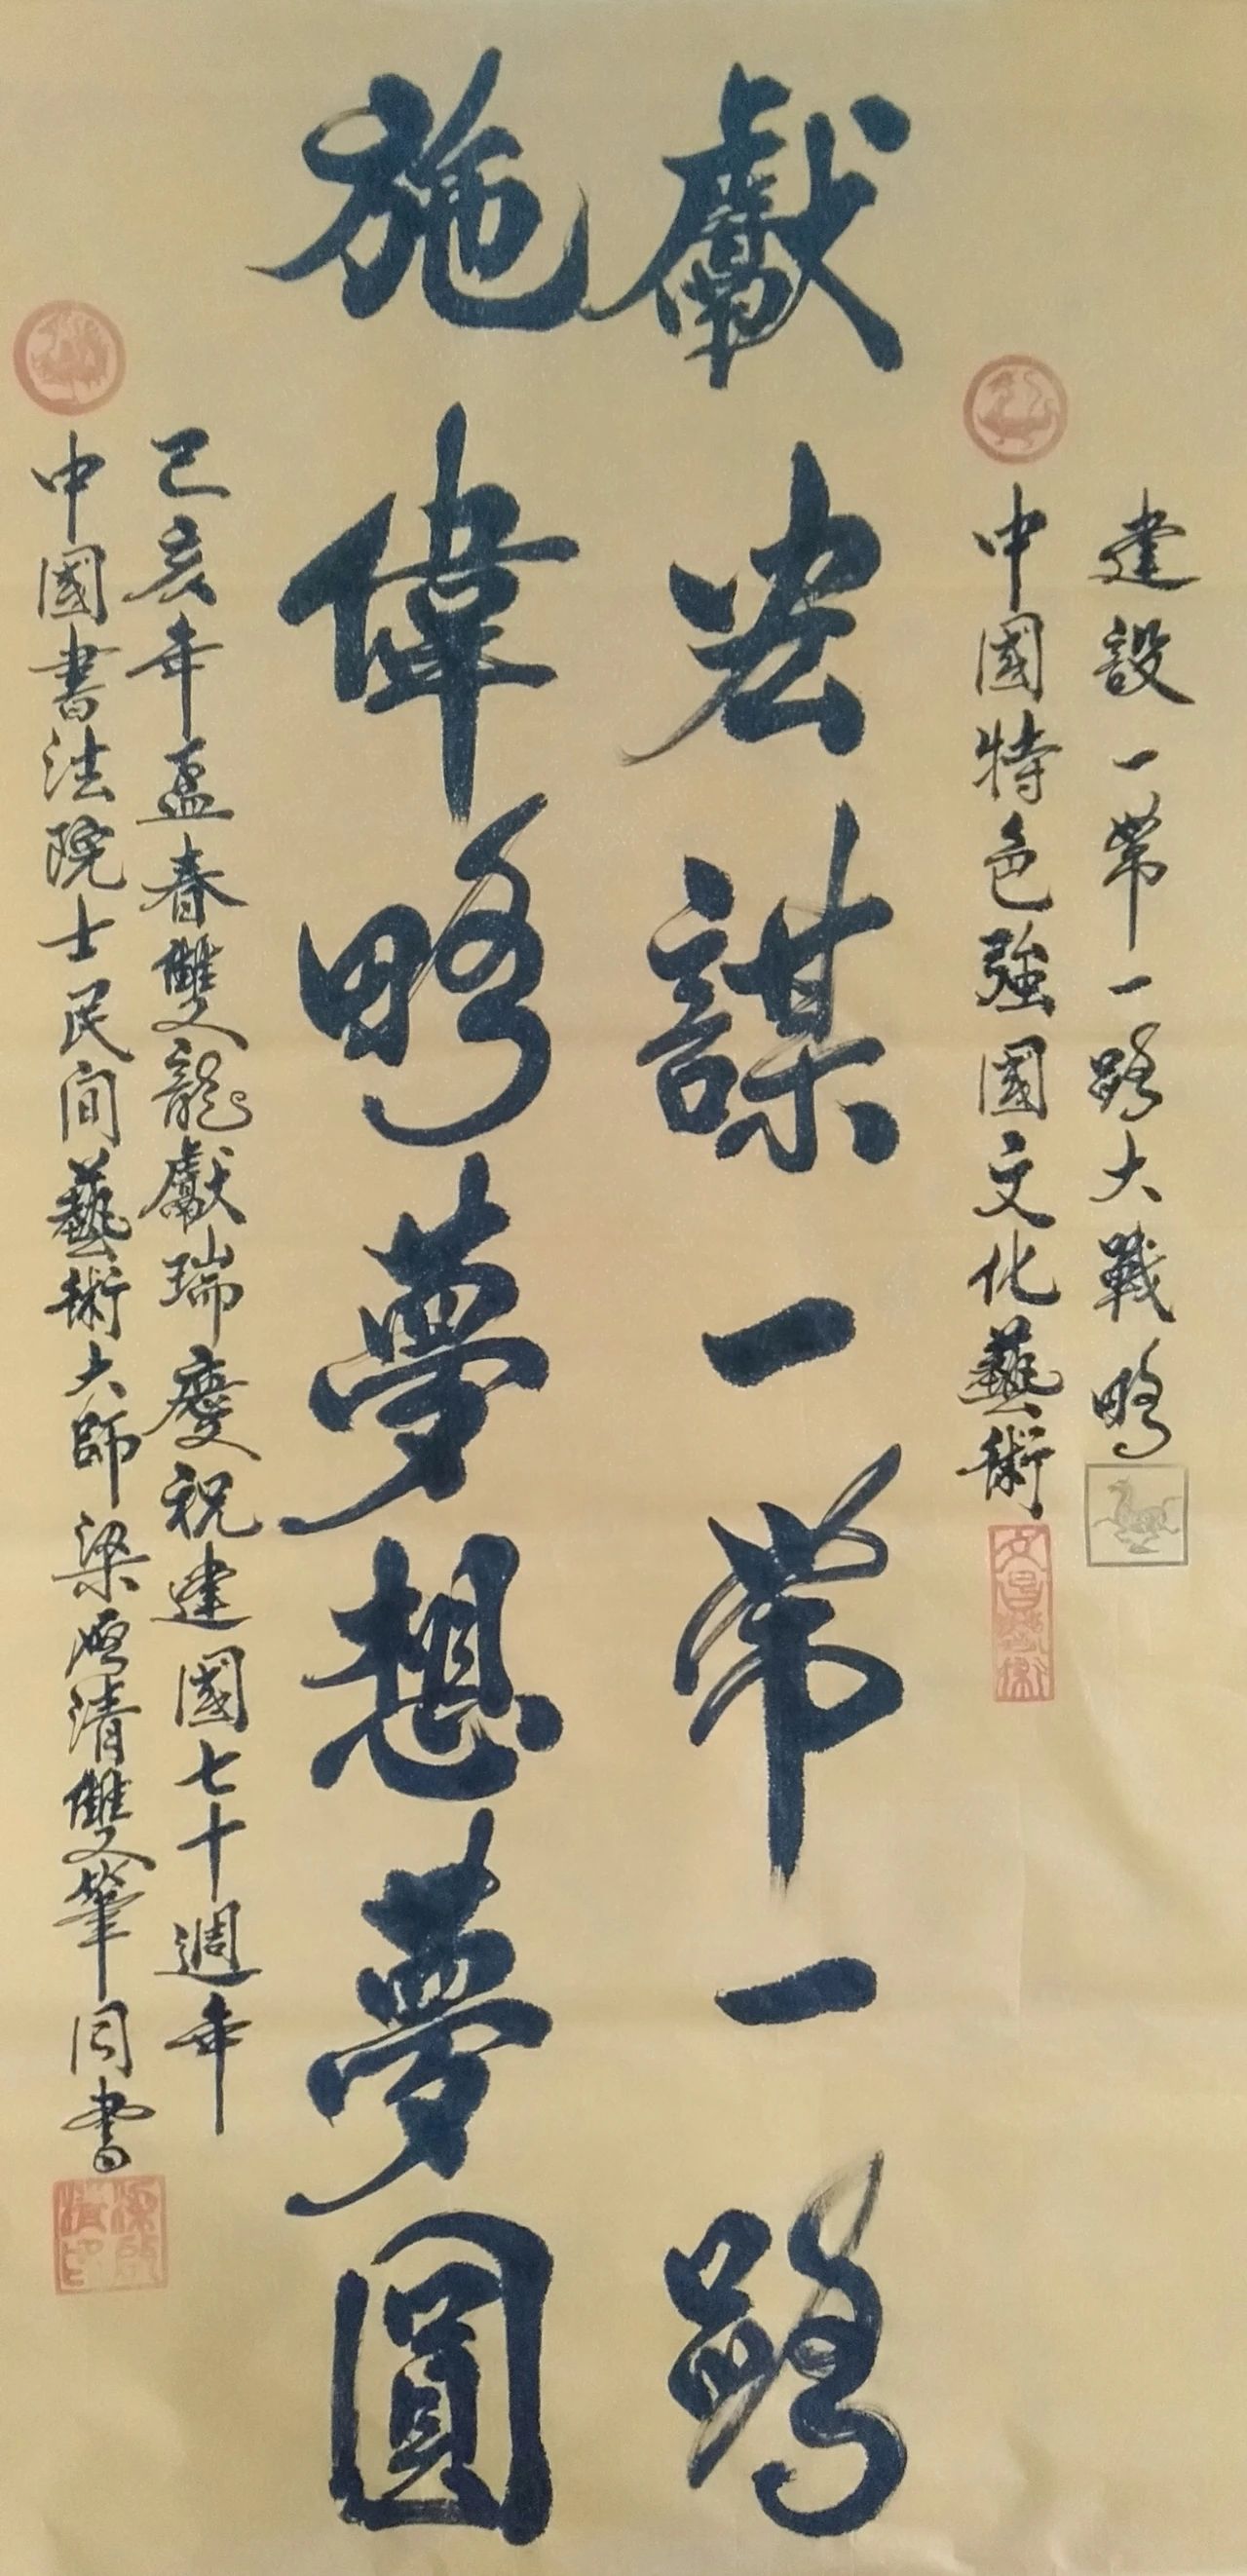 建設一帶一路大戰略
中國特色強國文化藝術
文昌藝術
獻宏謀一帶一路
施偉略夢想夢圓
己亥年孟春雙龍獻瑞慶祝建國七十週年
中國書法院士民間藝術大師梁啟清雙筆同書
梁啟清印